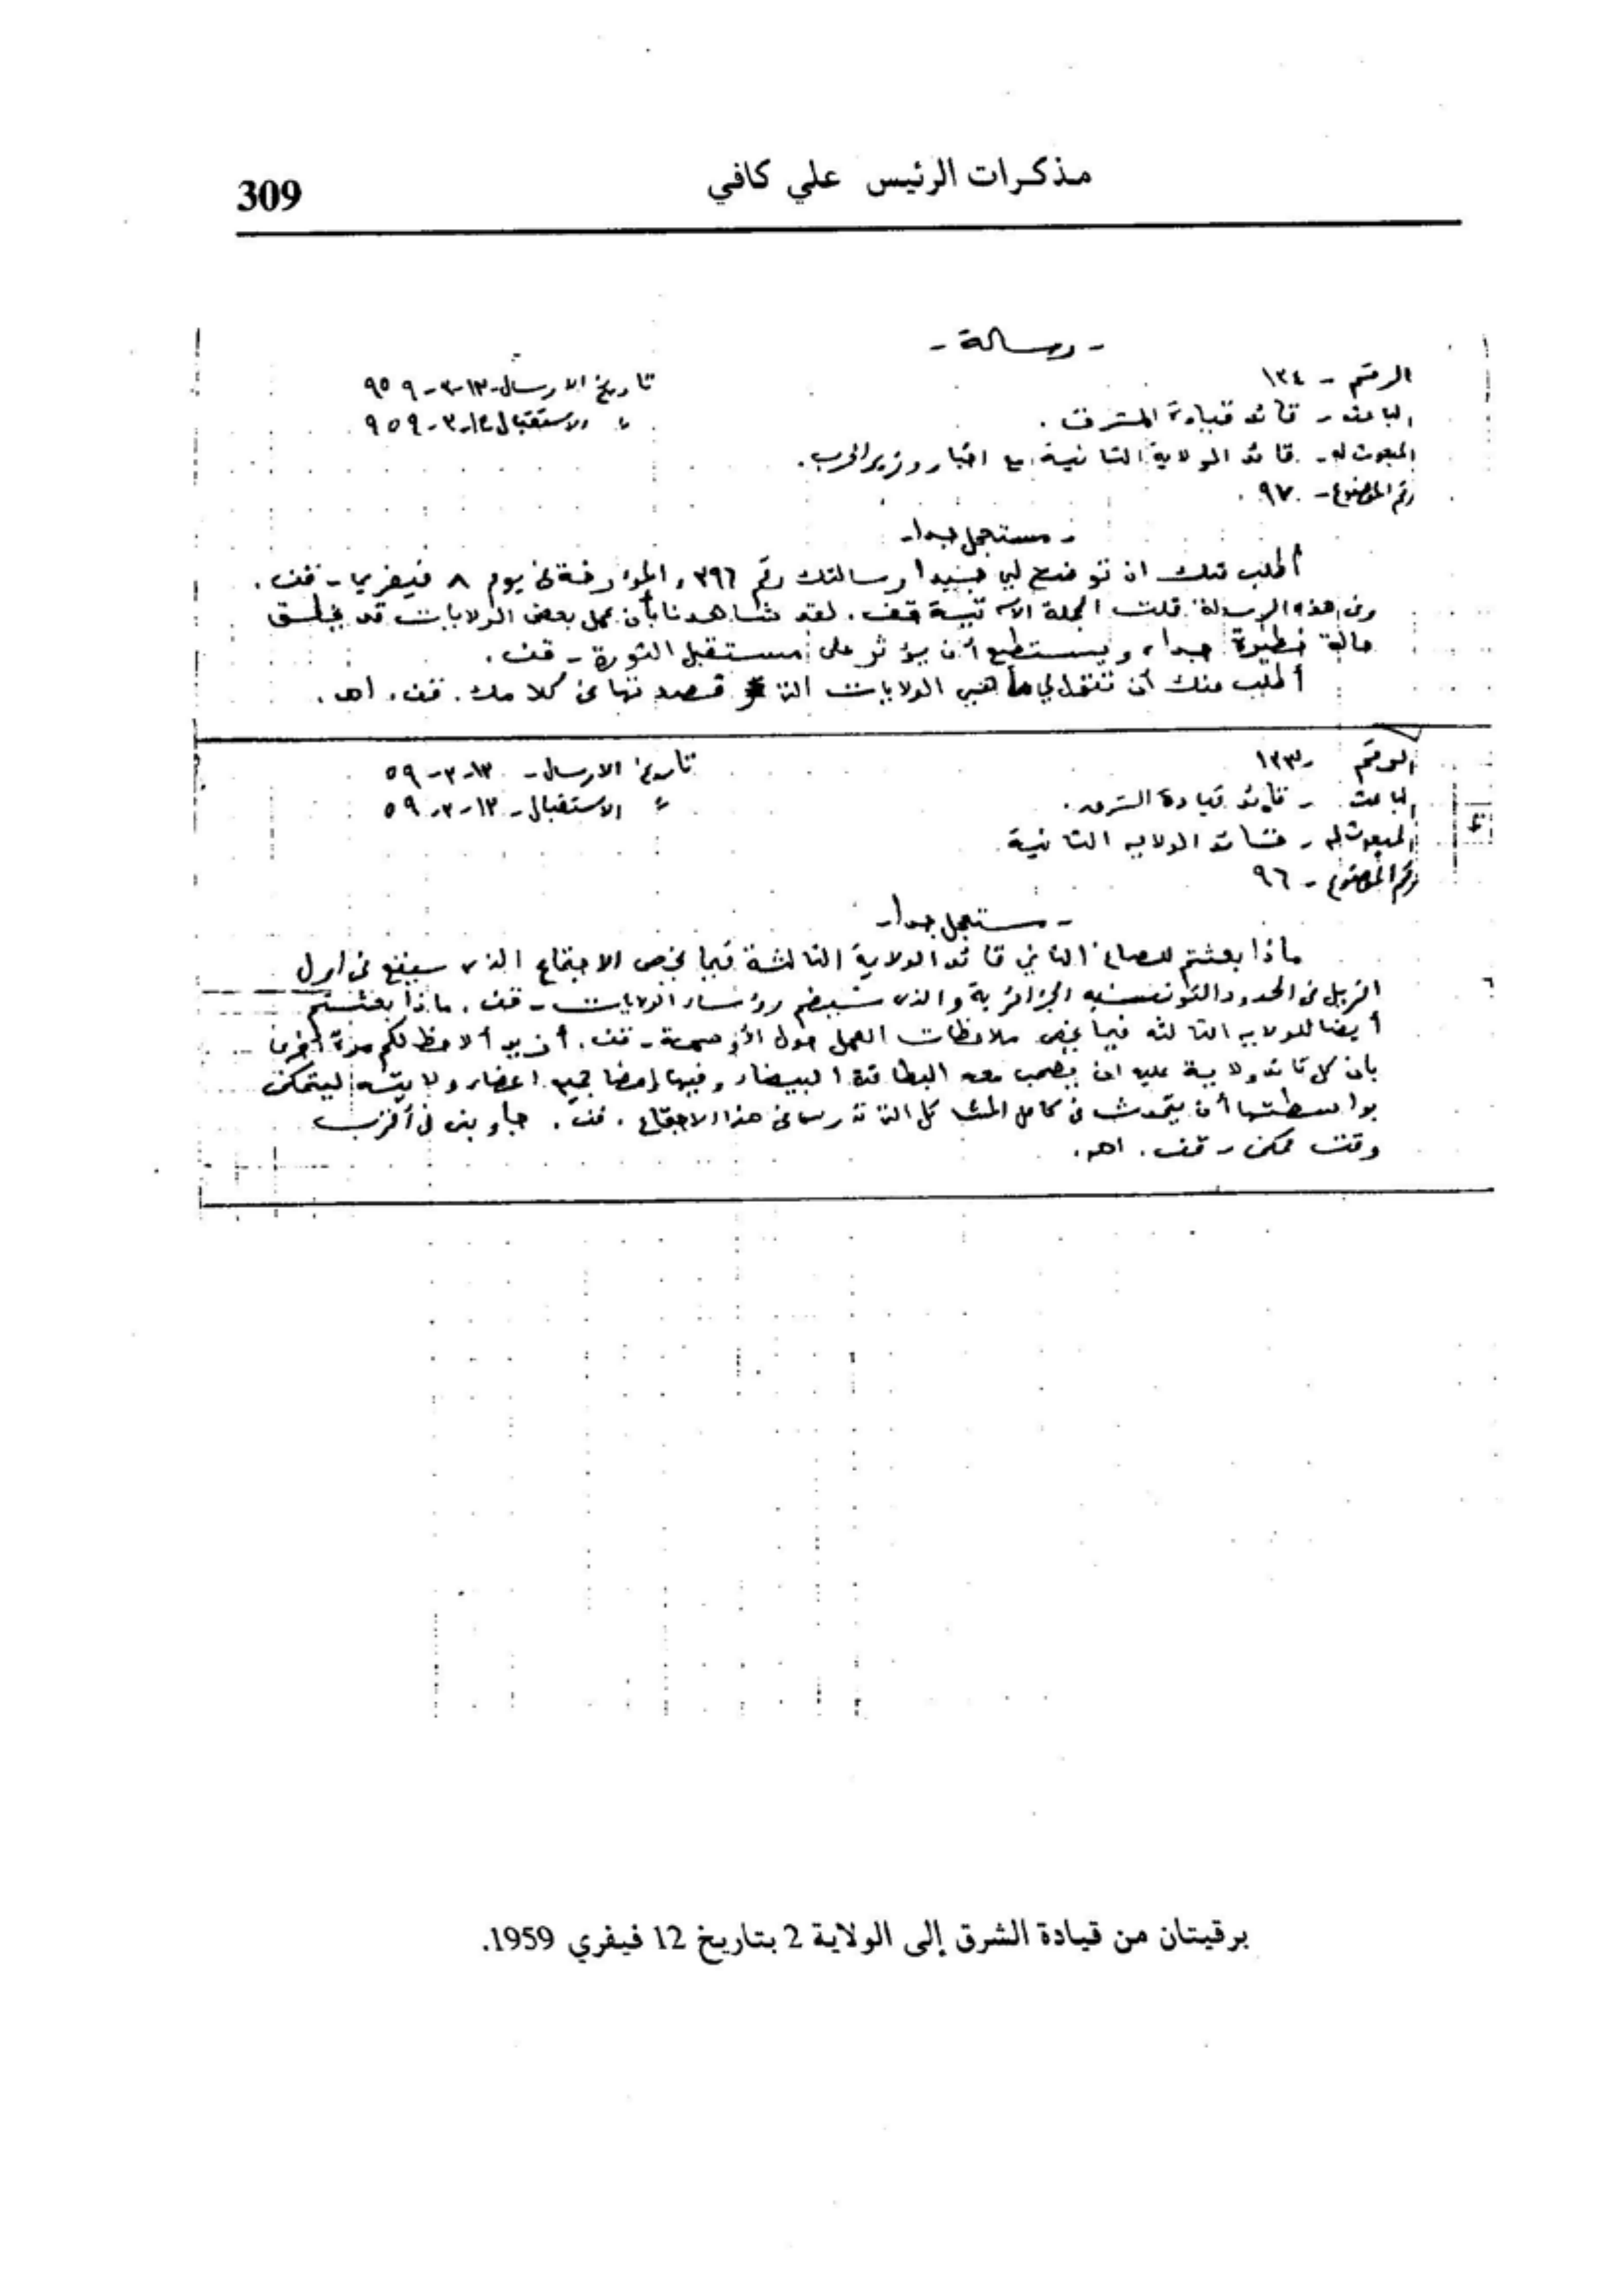 309
مذكرات الرئيس علي كافي
- رسالة -
الرقم - ١٣٤
تاريخ الارسال - ١٣-٣-٩٥٩
الباعث - قائد قيادة الشرق .
" الاستقبال ١٣-٣-٩٥٩
المبعوث له - قائد الولاية الثانية مع اخبار وزير الحرب .
رقم الموضوع - ٩٧ .
- مستعجل جدا -
أطلب منك ان توضح لي جيدا رسالتك رقم ٣٩٦ والمؤرخة في يوم ٨ فيفري - قف .
وفي هذه الرسالة قلت الجملة الآتية قف . لقد شاهدنا بأن عمل بعض الولايات قد يخلق
حالة خطيرة جدا ، ويستطيع أن يؤثر على مستقبل الثورة - قف .
أطلب منك أن تنقل لي ما هي الولايات التي قصدتها في كلامك . قف . اهـ .
الرقم - ١٣٣
تاريخ الارسال - ١٣-٣-٥٩
الباعث - قائد قيادة الشرق .
" الاستقبال - ١٣-٣-٥٩
المبعوث له - قائد الولاية الثانية
رقم الموضوع - ٩٦
- مستعجل جدا -
ماذا بعثتم للصاغ الثاني قائد الولاية الثالثة فيما يخص الاجتماع الذي سيقع في اول
افريل في الحدود التونسية الجزائرية والذي سيضم رؤساء الولايات - قف . ماذا بعثتم
أيضا للولاية الثالثة فيما يخص ملاحظات العمل حول الأوسمة - قف . أريد ألاحظ لكم مرة أخرى
بان كل قائد ولاية عليه ان يصحب معه البطاقة البيضاء وفيها إمضا جميع اعضاء ولايته ليتمكن
بواسطتها أن يتحدث في كامل المشاكل التي تدرس في هذا الاجتماع . قف . جاوبني في أقرب
وقت ممكن - قف . اهـ .
برقيتان من قيادة الشرق إلى الولاية 2 بتاريخ 12 فيفري 1959.